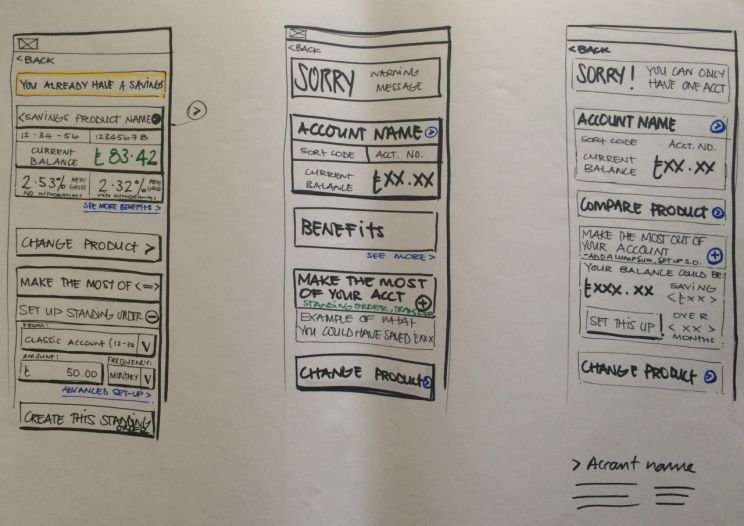 <BACK
YOU ALREADY HAVE A SAVINGS
<SAVINGS PRODUCT NAME>
12-34-56 12345678
CURRENT BALANCE £83.42
2.53% AER/GROSS 2.32% AER/GROSS
NO WITHDRAWALS WITHDRAWALS
SEE MORE BENEFITS >
CHANGE PRODUCT >
MAKE THE MOST OF <=>
SET UP STANDING ORDER
FROM:
CLASSIC ACCOUNT (12-34
AMOUNT: FREQUENCY:
£ 50.00 MONTHLY
ADVANCED SET-UP >
CREATE THIS STANDING ORDER
<BACK
SORRY WARNING MESSAGE
ACCOUNT NAME >
SORT CODE ACCT. NO.
CURRENT BALANCE £XX.XX
BENEFITS
SEE MORE >
MAKE THE MOST OF YOUR ACCT
STANDING ORDER, TRANSFER
EXAMPLE OF WHAT
YOU COULD HAVE SAVED £XXX
CHANGE PRODUCT >
<BACK
SORRY! YOU CAN ONLY HAVE ONE ACCT
ACCOUNT NAME >
SORT CODE ACCT. NO.
CURRENT BALANCE £XX.XX
COMPARE PRODUCT >
MAKE THE MOST OUT OF
YOUR ACCOUNT
- ADD A LUMP SUM, SET UP S.O.
YOUR BALANCE COULD BE:
£XXX.XX SAVING <£XX>
SET THIS UP OVER <XX> MONTHS
CHANGE PRODUCT >
> Account name